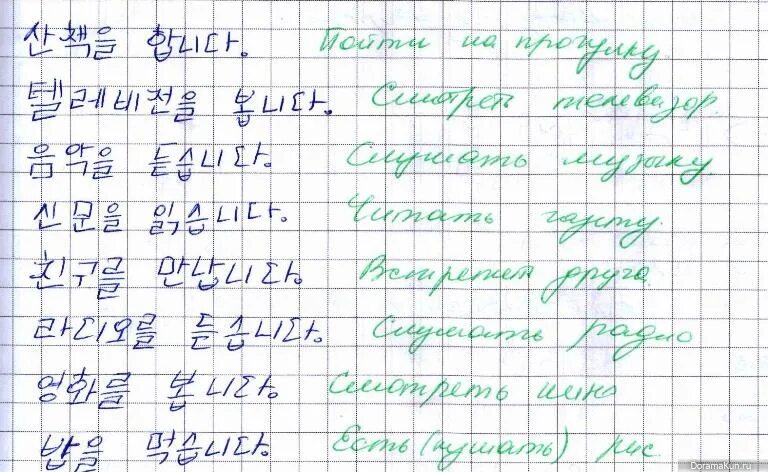 산책을 합니다. Пойти на прогулку.
텔레비전을 봅니다. Смотреть телевизор.
음악을 듣습니다. Слушать музыку.
신문을 읽습니다. Читать газету.
친구를 만납니다. Встретил друга.
라디오를 듣습니다. Слушать радио
영화를 봅니다. Смотреть кино
밥을 먹습니다. Есть (кушать) рис.
DoramaKun.ru